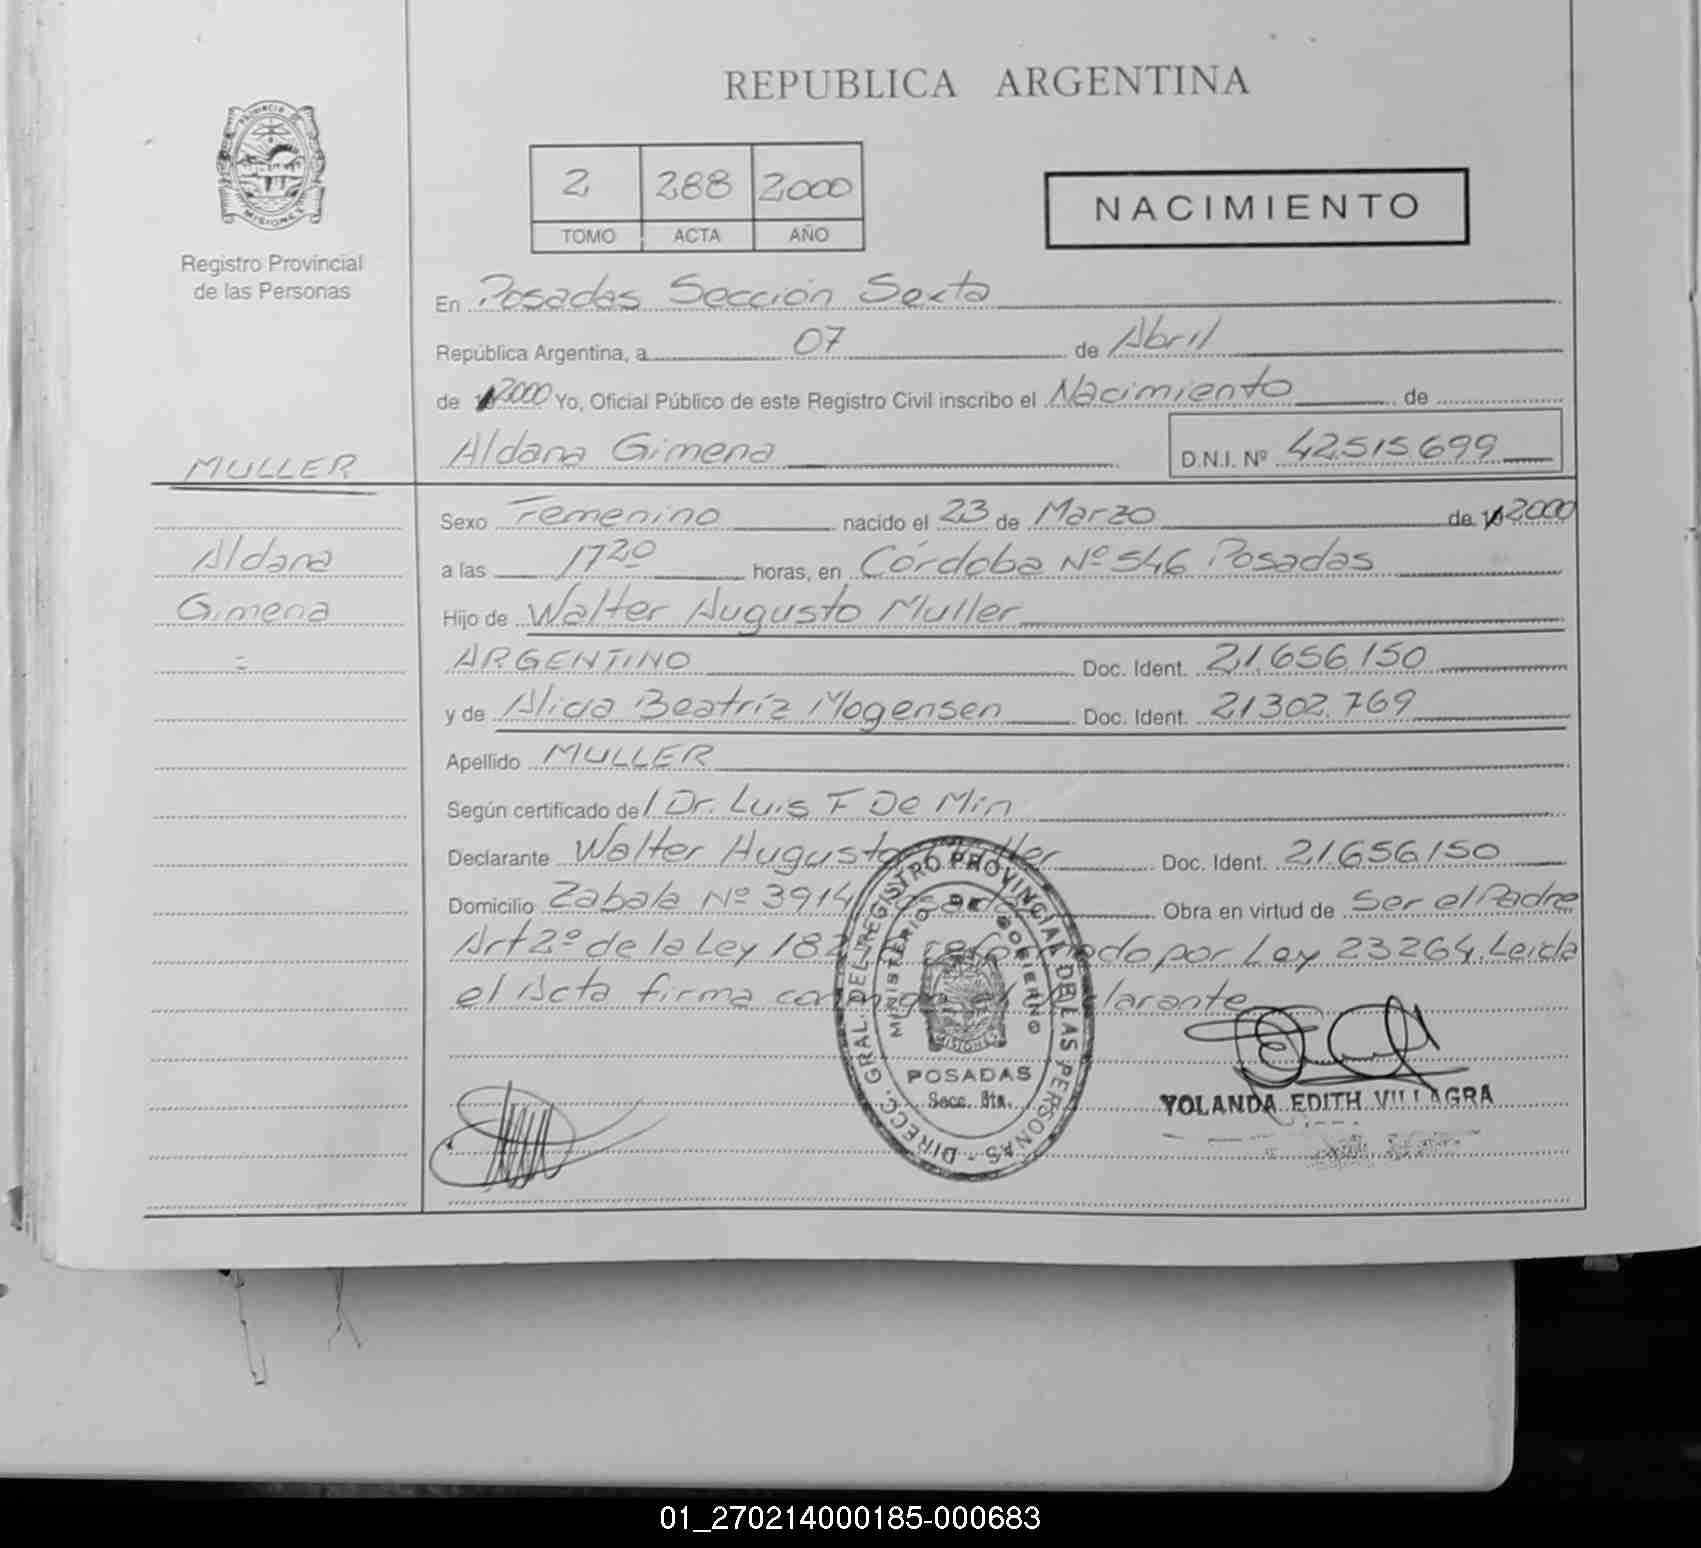 REPUBLICA ARGENTINA
PROVINCIA DE
MISIONES
Registro Provincial
de las Personas
2 288 2000
TOMO ACTA AÑO
NACIMIENTO
En Posadas Sección Sexta
República Argentina, a 07 de Abril
de 2000 Yo, Oficial Público de este Registro Civil inscribo el Nacimiento de
Aldana Gimena D.N.I. Nº 42.515.699
MULLER
Aldana
Gimena
Sexo Femenino nacido el 23 de Marzo de 2000
a las 1720 horas, en Córdoba Nº 546 Posadas
Hijo de Walter Augusto Muller
ARGENTINO Doc. Ident. 21.656.150
y de Alicia Beatríz Mogensen Doc. Ident. 21302.769
Apellido MULLER
Según certificado del Dr. Luis F De Min
Declarante Walter Augusto Muller Doc. Ident. 21.656150
Domicilio Zabala Nº 3914 Posadas Obra en virtud de Ser el Padre
Art 2º de la Ley reformado por Ley 23264. Leida
el Acta firma conmigo el declarante
DIRECC. GRAL. DEL REGISTRO PROVINCIAL DE LAS PERSONAS -
MINISTERIO DE GOBIERNO
MISIONES
POSADAS
Secc. 6ta.
YOLANDA EDITH VILLAGRA
01_270214000185-000683